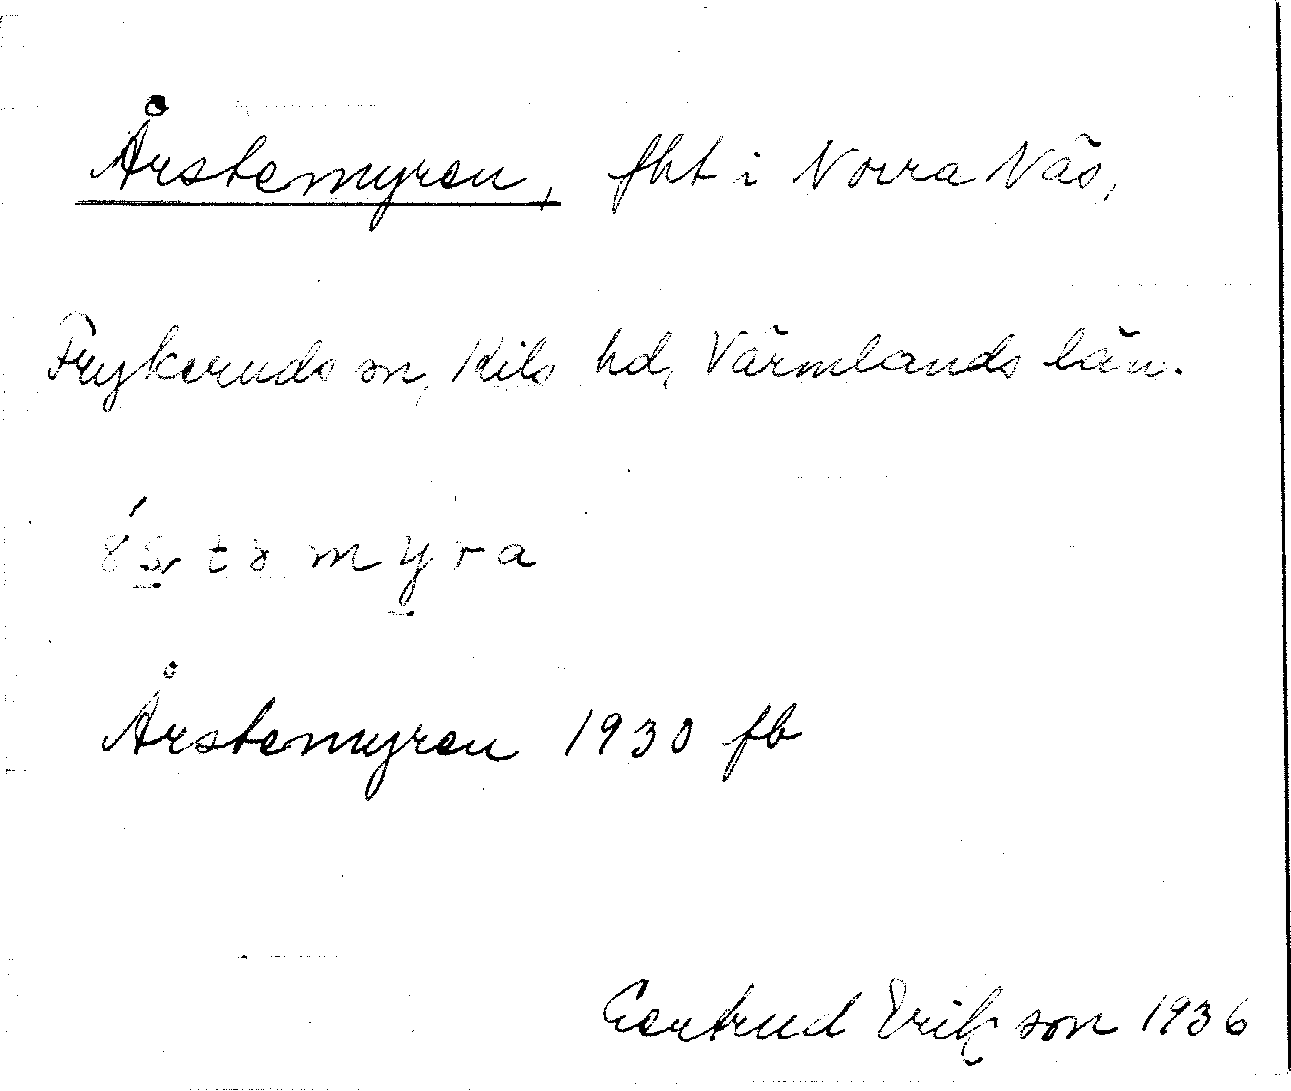 Årstemyren, fht i Norra Näs,
Frykeruds sn, Kils hd, Värmlands län.
Årstemyren 1930 fb
Gertrud Erikson 1936